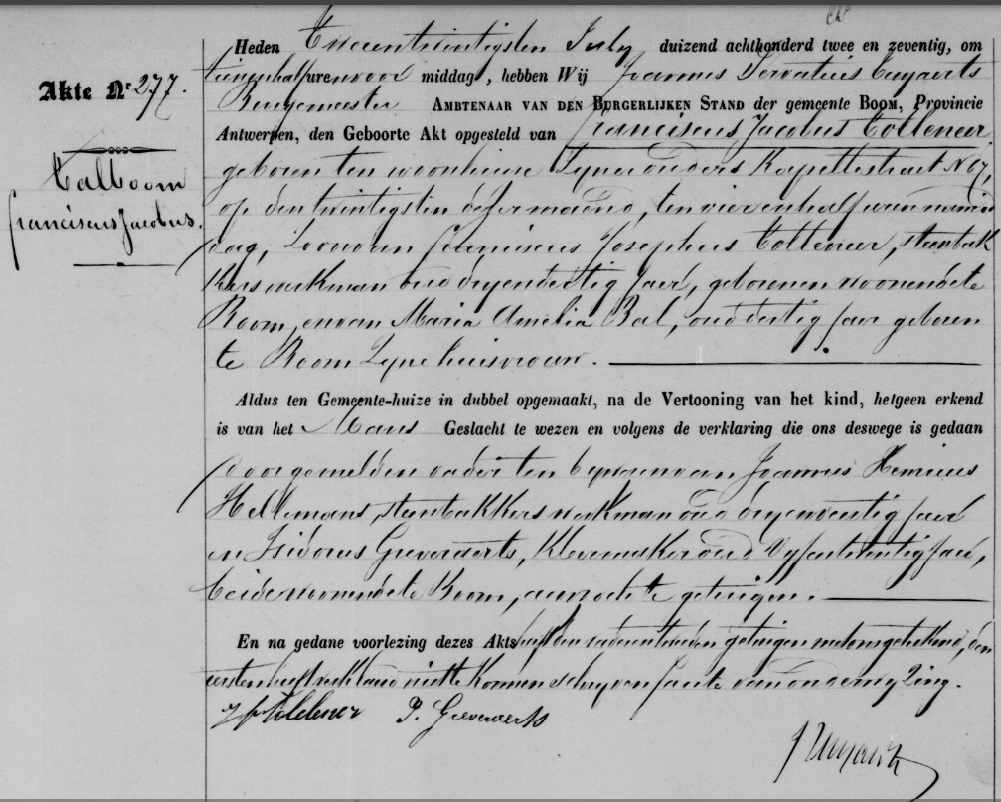 Akte N° 277.
Talboom
franciscus Jacobus.
Heden Tweeentwintigsten July duizend achthonderd twee en zeventig, om
tien en half uren voor middag, hebben Wij Joannes Servatius Cuyaerts
Burgemeester AMBTENAAR VAN DEN BURGERLIJKEN STAND der gemeente BOOM, Provincie
Antwerpen, den Geboorte Akt opgesteld van Franciscus Jacobus
geboren ten woonhuise zyner ouders Kapellestraet N 67,
op den twintigsten dezer maend, ten vier en half uren namid
dag, Zoon van Franciscus Josephus steenbak
kers werkman oud dryendertig jaer, geboren en woonende te
Boom, en van Maria Amelia Bal, oud dertig jaer geboren
te Boom Zyne huisvrouw.
Aldus ten Gemeente-huize in dubbel opgemaakt, na de Vertooning van het kind, hetgeen erkend
is van het Mans Geslacht te wezen en volgens de verklaring die ons deswege is gedaan
door gemelden vader ten bywezen van Joannes Henricus
Hellemans, steenbakkers werkman oud jaer
en Isidorus Grevaerts, Kleermaker oud Vyfentwintig jaer,
beide woonende te Boom, aenzochte getuigen.
En na gedane voorlezing dezes Akts heeft den vader en tweeden getuigen met ons geteekend, den
eersten heeft verklaerd niet te konnen schryven faute van onderwyzing.
Grevaerts